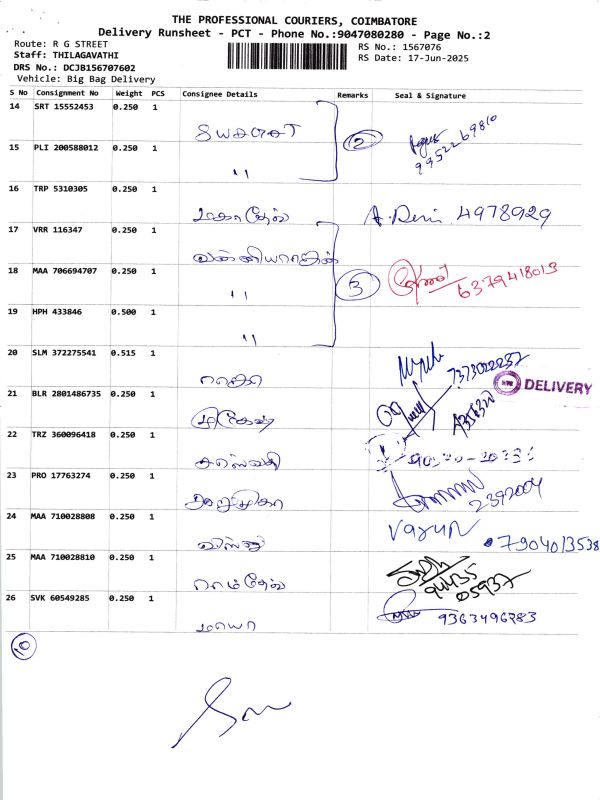 THE PROFESSIONAL COURIERS, COIMBATORE
Delivery Runsheet - PCT - Phone No.:9047080280 - Page No.:2
Route: R G STREET
Staff: THILAGAVATHI
DRS No.: DCJB156707602
Vehicle: Big Bag Delivery
RS No.: 1567076
RS Date: 17-Jun-2025
S No Consignment No Weight PCS Consignee Details Remarks Seal & Signature
14 SRT 15552453 0.250 1
9952269810
15 PLI 200588012 0.250 1 " 2
16 TRP 5310305 0.250 1 மகாதேவ் 4978929
17 VRR 116347 0.250 1
18 MAA 706694707 0.250 1 " 3 6379418013
19 HPH 433846 0.500 1 "
20 SLM 372275541 0.515 1
DELIVERY
21 BLR 2801486735 0.250 1
22 TRZ 360096418 0.250 1
23 PRO 17763274 0.250 1 2392004
24 MAA 710028808 0.250 1 Varun
7904013538
25 MAA 710028810 0.250 1 ராம்தேவ் 94435
05937
26 SVK 60549285 0.250 1 மாயா 9363496283
10